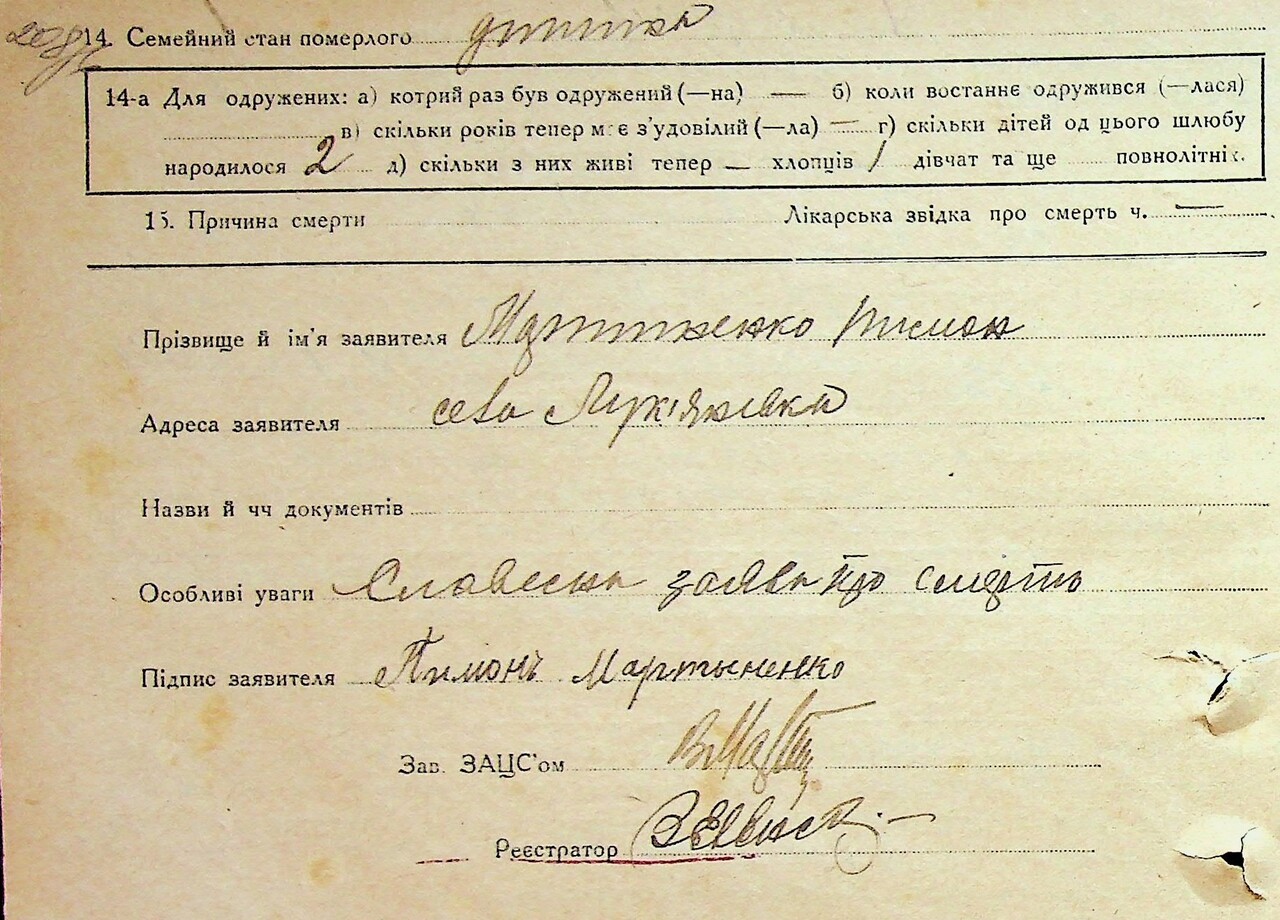 14. Семейний стан померлого дитина
14-а Для одружених: а) котрий раз був одружений (—на) — б) коли востаннє одружився (—лася)
в) скільки років тепер має з'удовілий (—ла) — г) скільки дітей од цього шлюбу
народилося 2 д) скільки з них живі тепер — хлопців 1 дівчат та ще повнолітніх.
15. Причина смерти Лікарська звідка про смерть ч. —
Прізвище й ім'я заявителя Мартиненко Пимон
Адреса заявителя село Лук'янівка
Назви й чч документів
Особливі уваги Славесна заява про смерть
Підпис заявителя Пимонъ Мартыненко
Зав. ЗАЦС'ом
Реєстратор